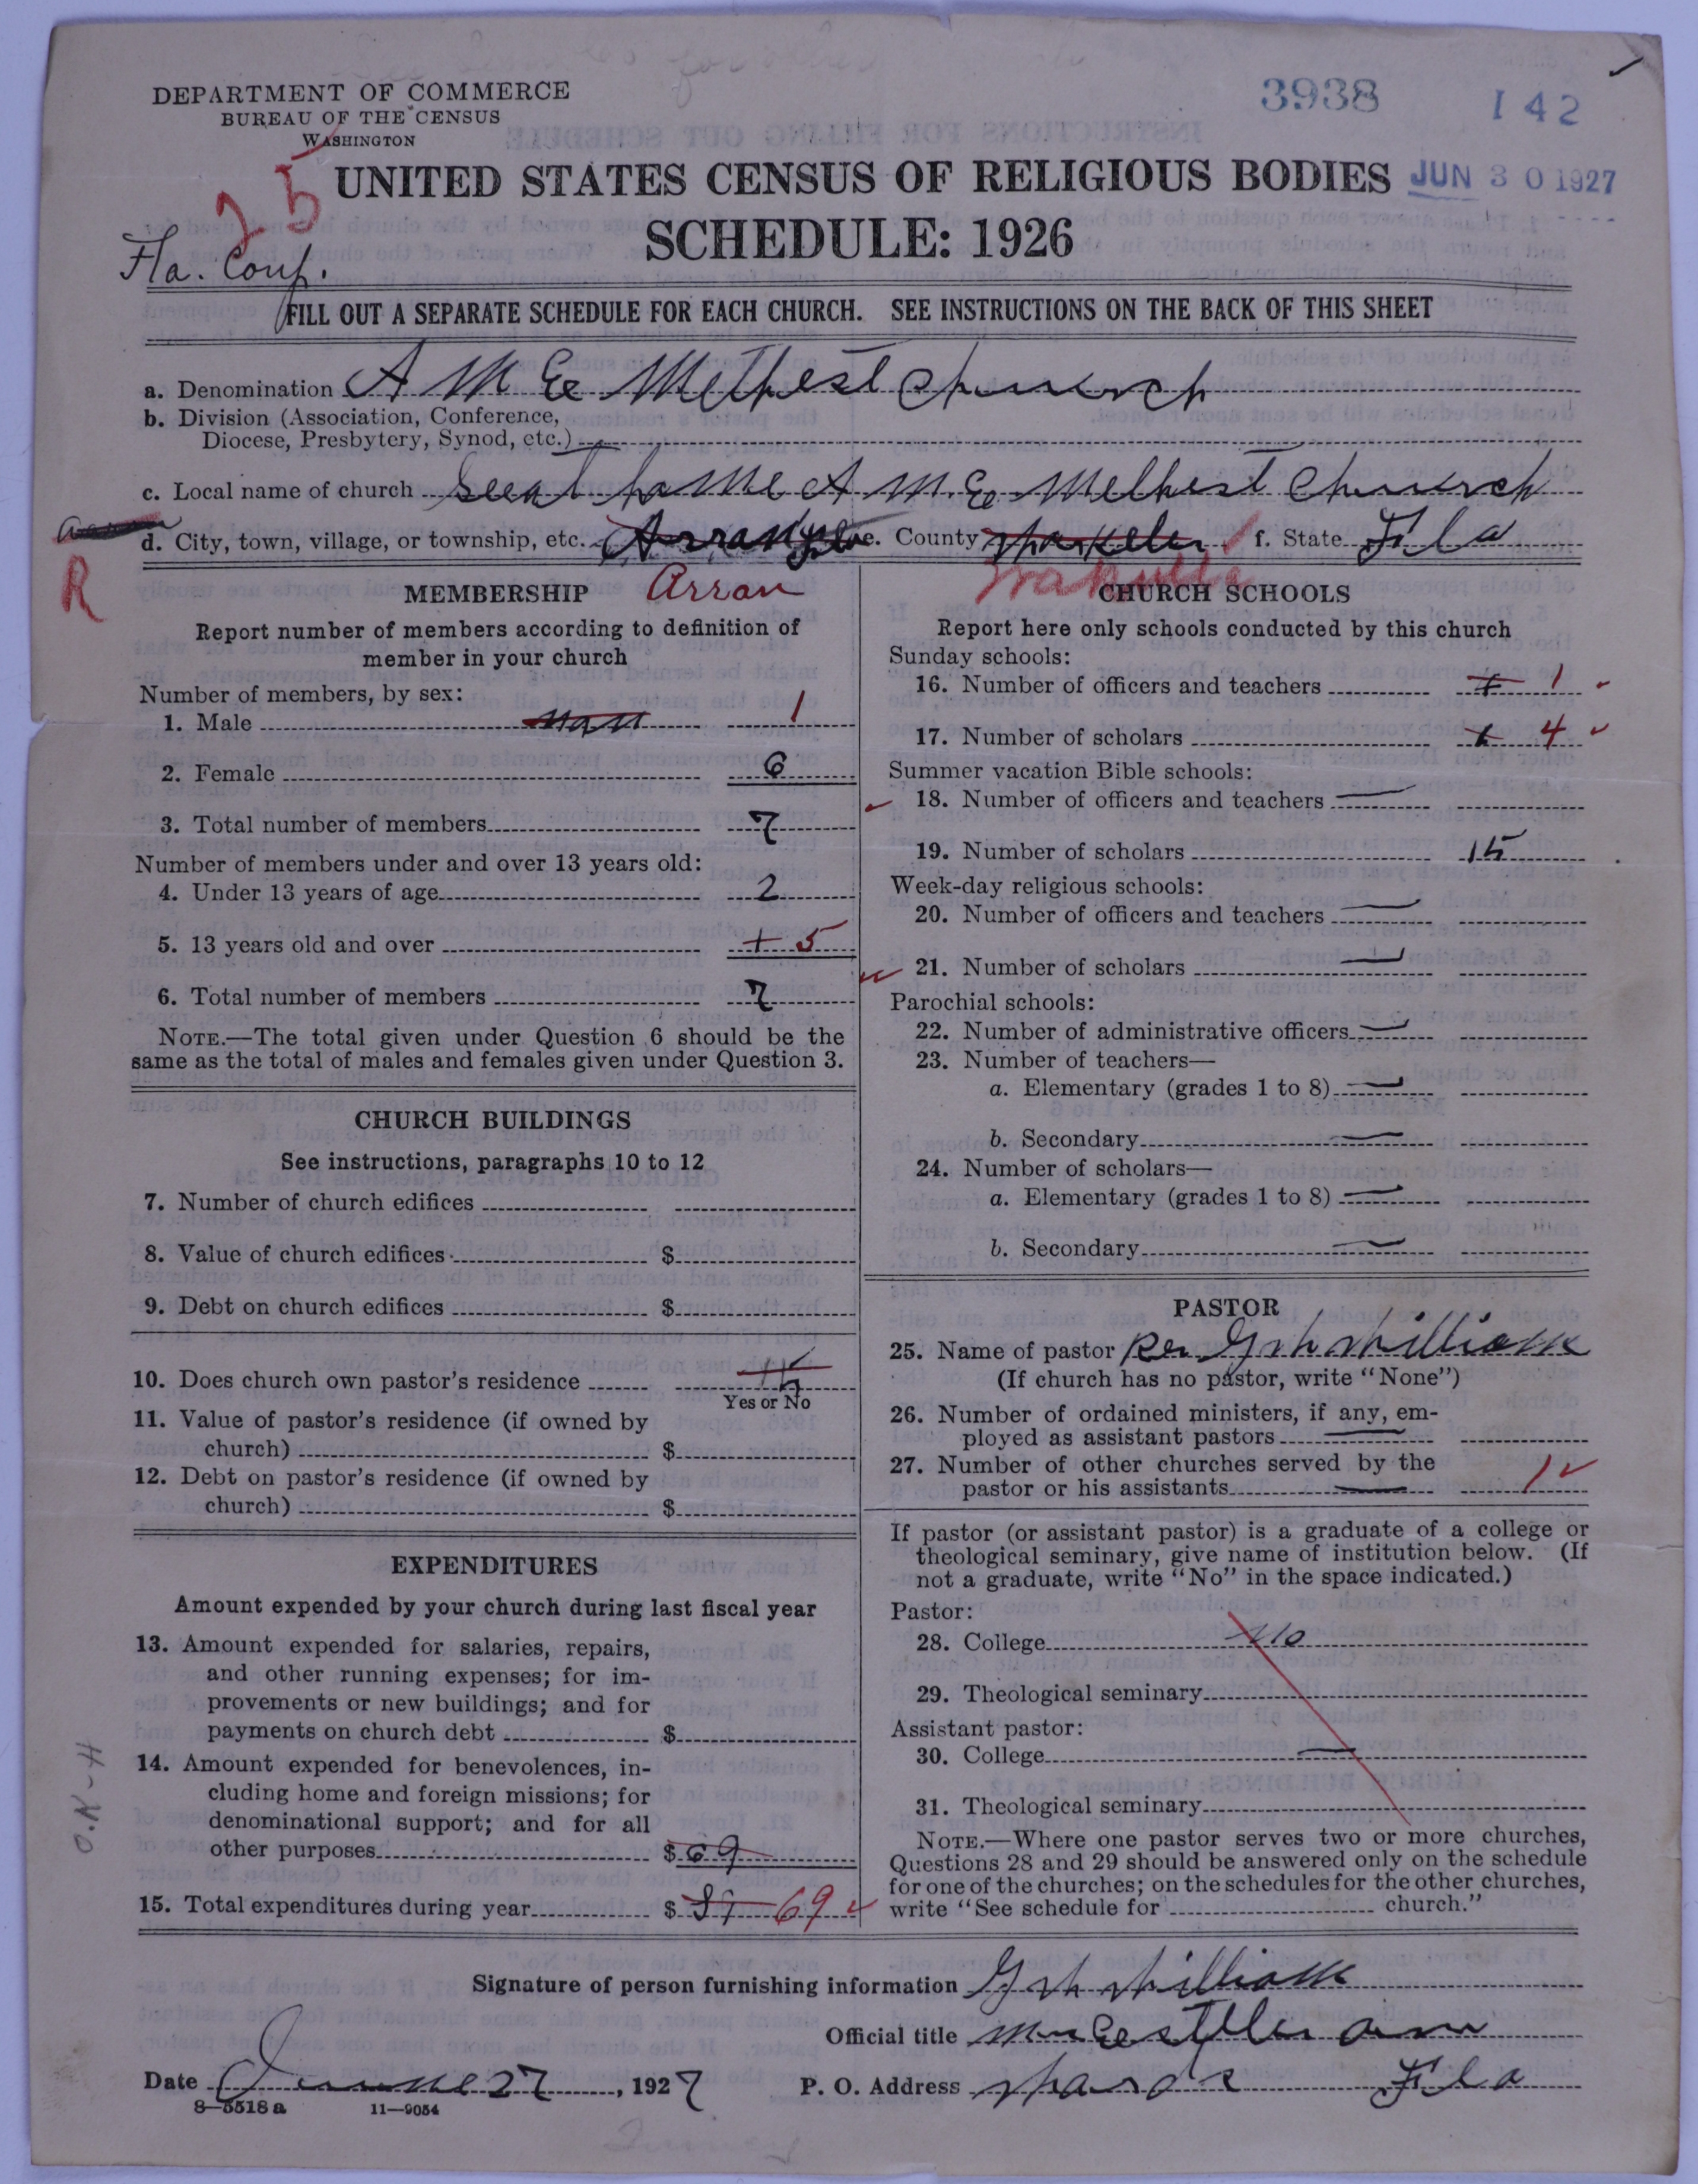 3938 142
DEPARTMENT OF COMMERCE
BUREAU OF THE CENSUS
WASHINGTON
25
UNITED STATES CENSUS OF RELIGIOUS BODIES JUN 30 1927
SCHEDULE: 1926
Fla. Conf.
FILL OUT A SEPARATE SCHEDULE FOR EACH CHURCH. SEE INSTRUCTIONS ON THE BACK OF THIS SHEET
a. Denomination A M E Methest Chuurch
b. Division (Association, Conference,
Diocese, Presbytery, Synod, etc.)
c. Local name of church A M. E Melhest Chuurch
d. City, town, village, or township, etc. e. County f. State Fla
R
Arran Wakulla
MEMBERSHIP
Report number of members according to definition of
member in your church
Number of members, by sex:
1. Male 1
2. Female 6
3. Total number of members 7
Number of members under and over 13 years old:
4. Under 13 years of age 2
5. 13 years old and over + 5
6. Total number of members 7
NOTE.—The total given under Question 6 should be the
same as the total of males and females given under Question 3.
CHURCH BUILDINGS
See instructions, paragraphs 10 to 12
7. Number of church edifices
8. Value of church edifices $
9. Debt on church edifices $
10. Does church own pastor's residence
Yes or No
11. Value of pastor's residence (if owned by
church) $
12. Debt on pastor's residence (if owned by
church) $
EXPENDITURES
Amount expended by your church during last fiscal year
13. Amount expended for salaries, repairs,
and other running expenses; for im-
provements or new buildings; and for
payments on church debt $
14. Amount expended for benevolences, in-
cluding home and foreign missions; for
denominational support; and for all
other purposes $ 69
15. Total expenditures during year $ 69
O.K-H
CHURCH SCHOOLS
Report here only schools conducted by this church
Sunday schools:
16. Number of officers and teachers 1
17. Number of scholars 4
Summer vacation Bible schools:
18. Number of officers and teachers —
19. Number of scholars 15
Week-day religious schools:
20. Number of officers and teachers —
21. Number of scholars —
Parochial schools:
22. Number of administrative officers —
23. Number of teachers—
a. Elementary (grades 1 to 8) —
b. Secondary —
24. Number of scholars—
a. Elementary (grades 1 to 8) —
b. Secondary —
PASTOR
25. Name of pastor Rev
(If church has no pastor, write "None")
26. Number of ordained ministers, if any, em-
ployed as assistant pastors —
27. Number of other churches served by the
pastor or his assistants — 1
If pastor (or assistant pastor) is a graduate of a college or
theological seminary, give name of institution below. (If
not a graduate, write "No" in the space indicated.)
Pastor:
28. College No
29. Theological seminary
Assistant pastor:
30. College —
31. Theological seminary
NOTE.—Where one pastor serves two or more churches,
Questions 28 and 29 should be answered only on the schedule
for one of the churches; on the schedules for the other churches,
write "See schedule for church."
Signature of person furnishing information
Official title
Date June 27, 1927 P. O. Address Fla
8—5518a 11—9054